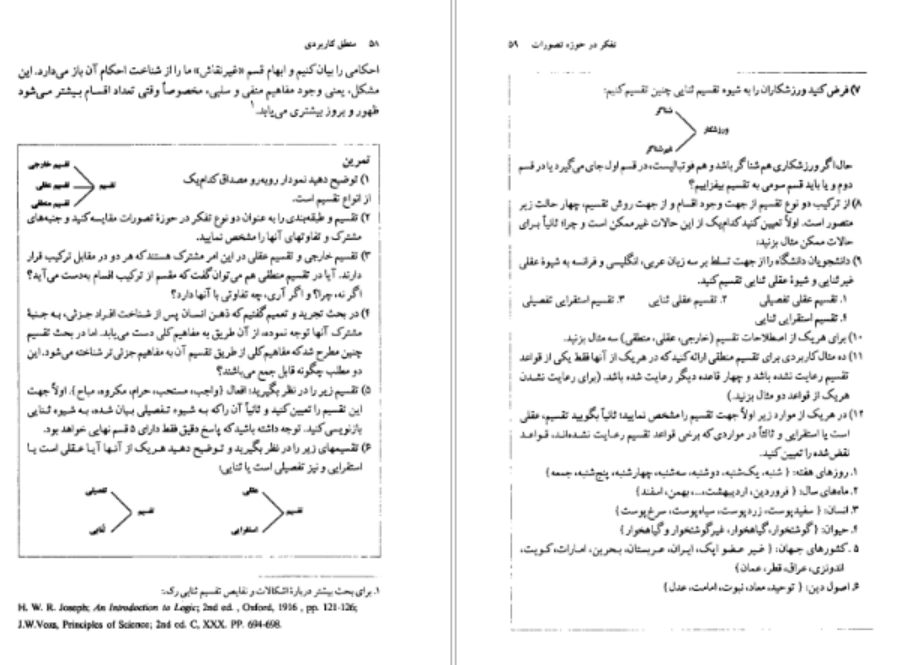 ۵۸ منطق کاربردی
احکامی را بیان کنیم و ابهام قسم «غیرنقاش» ما را از شناخت احکام آن باز می‌دارد. این
مشکل، یعنی وجود مفاهیم منفی و سلبی، مخصوصاً وقتی تعداد اقسام بیشتر می‌شود
ظهور و بروز بیشتری می‌یابد.۱
تمرین
۱) توضیح دهید نمودار روبه‌رو مصداق کدام‌یک
از انواع تقسیم است.
تقسیم
تقسیم خارجی
تقسیم عقلی
تقسیم منطقی
۲) تقسیم و طبقه‌بندی را به عنوان دو نوع تفکر در حوزهٔ تصورات مقایسه کنید و جنبه‌های
مشترک و تفاوتهای آنها را مشخص نمایید.
۳) تقسیم خارجی و تقسیم عقلی در این امر مشترک هستند که هر دو در مقابل ترکیب قرار
دارند. آیا در تقسیم منطقی هم می‌توان گفت که مقسم از ترکیب اقسام به‌دست می‌آید؟
اگر نه، چرا؟ و اگر آری، چه تفاوتی با آنها دارد؟
۴) در بحث تجرید و تعمیم گفتیم که ذهن انسان پس از شناخت افراد جزئی، به جنبهٔ
مشترک آنها توجه نموده، از آن طریق به مفاهیم کلی دست می‌یابد. اما در بحث تقسیم
چنین مطرح شد که مفاهیم کلی از طریق تقسیم آن به مفاهیم جزئی‌تر شناخته می‌شود. این
دو مطلب چگونه قابل جمع می‌باشند؟
۵) تقسیم زیر را در نظر بگیرید: افعال {واجب، مستحب، حرام، مکروه، مباح}. اولاً جهت
این تقسیم را تعیین کنید و ثانیاً آن را که به شیوه تفصیلی بیان شده، به شیوه ثنایی
بازنویسی کنید. توجه داشته باشید که پاسخ دقیق فقط دارای ۵ قسم نهایی خواهد بود.
۶) تقسیمهای زیر را در نظر بگیرید و توضیح دهید هر یک از آنها آیا عقلی است یا
استقرایی و نیز تفصیلی است یا ثنایی:
تقسیم
عقلی
استقرایی
تقسیم
تفصیلی
ثنایی
۱. برای بحث بیشتر دربارهٔ اشکالات و نقایص تقسیم ثنایی رک.:
H. W. R. Joseph; An Introduction to Logic; 2nd ed. , Oxford, 1916 , pp. 121-126;
J.W.Voxs, Principles of Science; 2nd ed. C, XXX. PP. 694-698.
تفکر در حوزه تصورات ۵۹
۷) فرض کنید ورزشکاران را به شیوه تقسیم ثنایی چنین تقسیم کنیم:
ورزشکار
شناگر
غیرشناگر
حال اگر ورزشکاری هم شناگر باشد و هم فوتبالیست، در قسم اول جای می‌گیرد یا در قسم
دوم و یا باید قسم سومی به تقسیم بیفزاییم؟
۸) از ترکیب دو نوع تقسیم از جهت وجود اقسام و از جهت روش تقسیم، چهار حالت زیر
متصور است. اولاً تعیین کنید کدام‌یک از این حالات غیرممکن است و چرا؛ ثانیاً برای
حالات ممکن مثال بزنید:
۹) دانشجویان دانشگاه را از جهت تسلط بر سه زبان عربی، انگلیسی و فرانسه به شیوهٔ عقلی
غیر ثنایی و شیوهٔ عقلی ثنایی تقسیم کنید.
۱. تقسیم عقلی تفصیلی ۲. تقسیم عقلی ثنایی ۳. تقسیم استقرایی تفصیلی
۴. تقسیم استقرایی ثنایی
۱۰) برای هر یک از اصطلاحات تقسیم (خارجی، عقلی، منطقی) سه مثال بزنید.
۱۱) ده مثال کاربردی برای تقسیم منطقی ارائه کنید که در هر یک از آنها فقط یکی از قواعد
تقسیم رعایت نشده باشد و چهار قاعده دیگر رعایت شده باشد. (برای رعایت نشدن
هر یک از قواعد دو مثال بزنید.)
۱۲) در هر یک از موارد زیر اولاً جهت تقسیم را مشخص نمایید؛ ثانیاً بگویید تقسیم، عقلی
است یا استقرایی و ثالثاً در مواردی که برخی قواعد تقسیم رعایت نشده‌اند، قواعد
نقض‌شده را تعیین کنید.
۱. روزهای هفته: { شنبه، یک‌شنبه، دوشنبه، سه‌شنبه، چهارشنبه، پنج‌شنبه، جمعه}
۲. ماه‌های سال: { فروردین، اردیبهشت،...، بهمن، اسفند}
۳. انسان: {سفیدپوست، زردپوست، سیاه‌پوست، سرخ‌پوست}
۴. حیوان: {گوشتخوار، گیاهخوار، غیرگوشتخوار و گیاهخوار}
۵. کشورهای جهان: { غیر عضو اپک، ایران، عربستان، بحرین، امارات، کویت،
اندونزی، عراق، قطر، عمان}
۶. اصول دین: { توحید، معاد، نبوت، امامت، عدل}